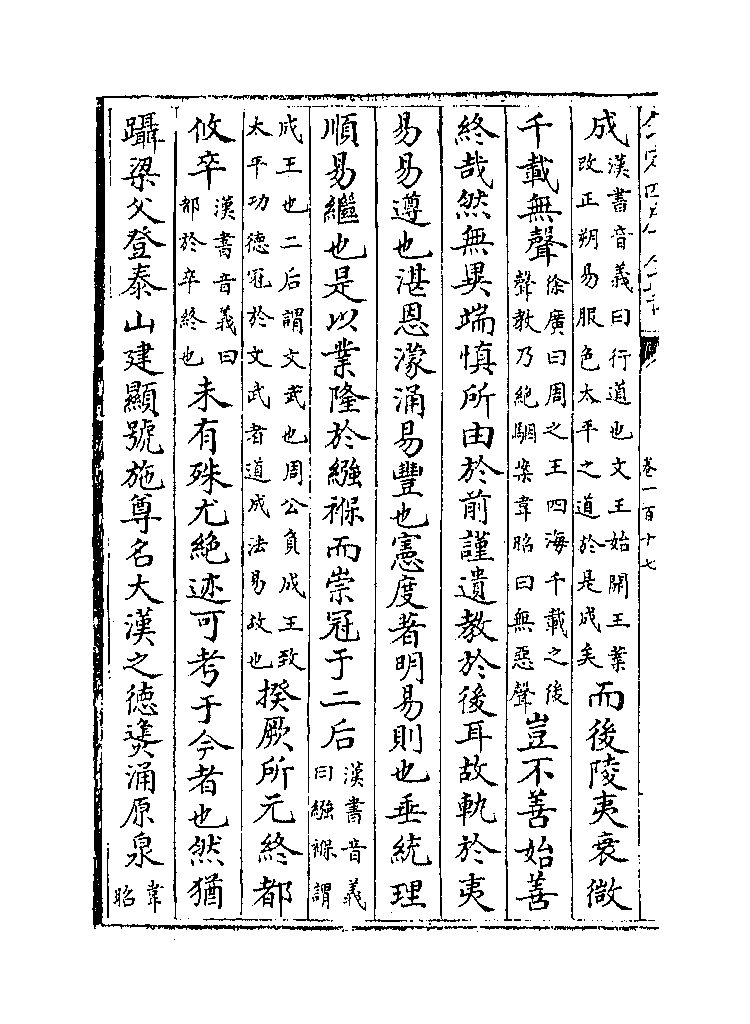 欽定四庫全書
卷一百十七
成漢書音義曰行道也文王始開王業改正朔易服色太平之道於是成矣而後陵夷衰微
千載無聲徐廣曰周之王四海千載之後聲教乃絶駰案韋昭曰無惡聲豈不善始善
終哉然無異端慎所由於前謹遺教於後耳故軌於夷
易易遵也湛恩濛涌易豐也憲度著明易則也垂統理
順易繼也是以業隆於繈褓而崇冠于二后漢書音義曰繈褓謂
成王也二后謂文武也周公負成王致太平功德冠於文武者道成法易故也揆厥所元終都
攸卒漢書音義曰都於卒終也未有殊尤絶迹可考于今者也然猶
躡梁父登泰山建顯號施尊名大漢之德㷭涌原泉韋昭